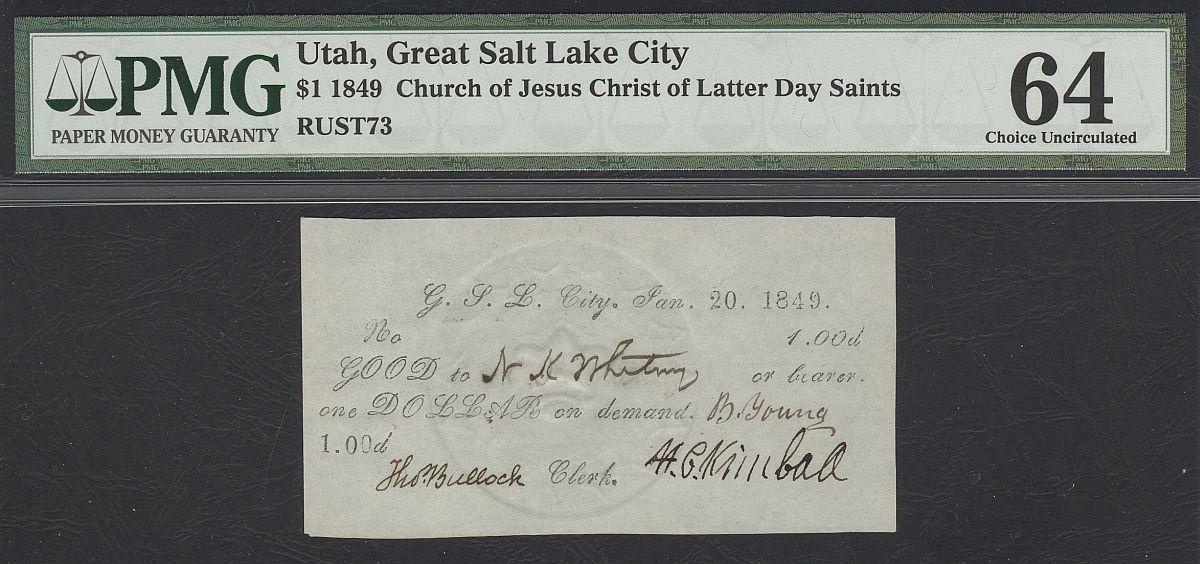 PMG
PAPER MONEY GUARANTY
Utah, Great Salt Lake City
$1 1849 Church of Jesus Christ of Latter Day Saints
RUST73
64
Choice Uncirculated
G. S. L. City. Jan. 20. 1849.
No 1.00d
GOOD to N K Whitney or bearer.
one DOLLAR on demand. B. Young
1.00d
H. C. Kimball
Tho. Bullock Clerk.